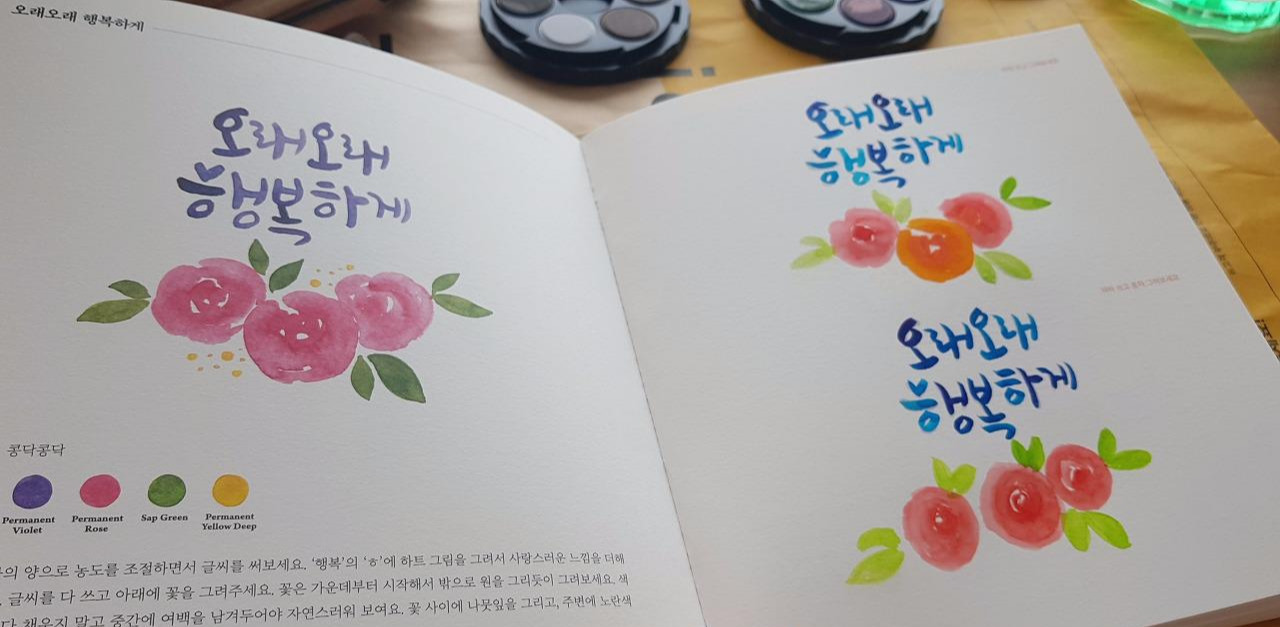 오래오래 행복하게
오래오래
행복하게
콩닥콩닥
Permanent
Violet
Permanent
Rose
Sap Green
Permanent
Yellow Deep
의 양으로 농도를 조절하면서 글씨를 써보세요. ‘행복’의 ‘ㅎ’에 하트 그림을 그려서 사랑스러운 느낌을 더해
글씨를 다 쓰고 아래에 꽃을 그려주세요. 꽃은 가운데부터 시작해서 밖으로 원을 그리듯이 그려보세요. 색
다 채우지 말고 중간에 여백을 남겨두어야 자연스러워 보여요. 꽃 사이에 나뭇잎을 그리고, 주변에 노란색
오래오래
행복하게
오래오래
행복하게